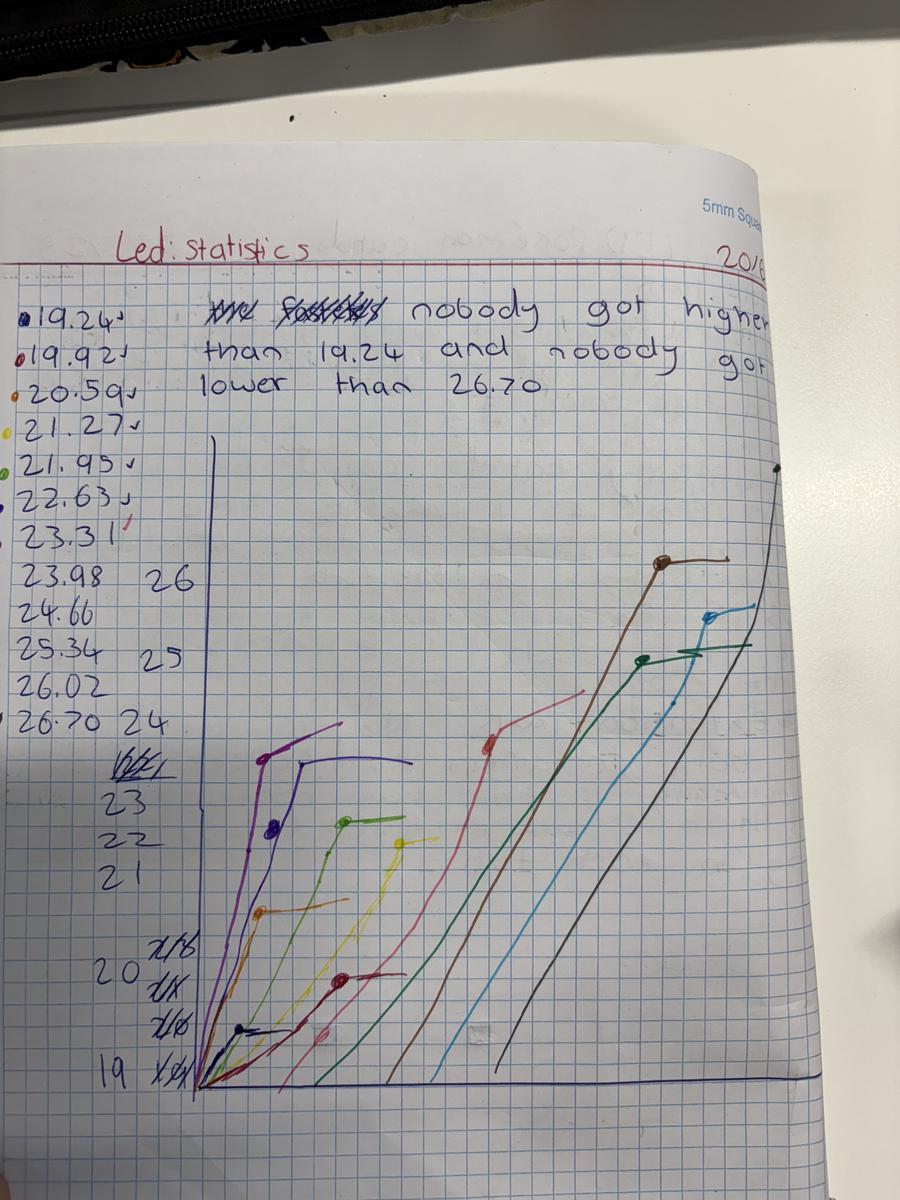 5mm Squa
Led: statistics
2016
19.24
19.92
20.59
21.27
21.95
22.63
23.31
23.98
24.66
25.34
26.02
26.70
nobody got higher
than 19.24 and nobody got
lower than 26.70
26
25
24
23
22
21
20
19